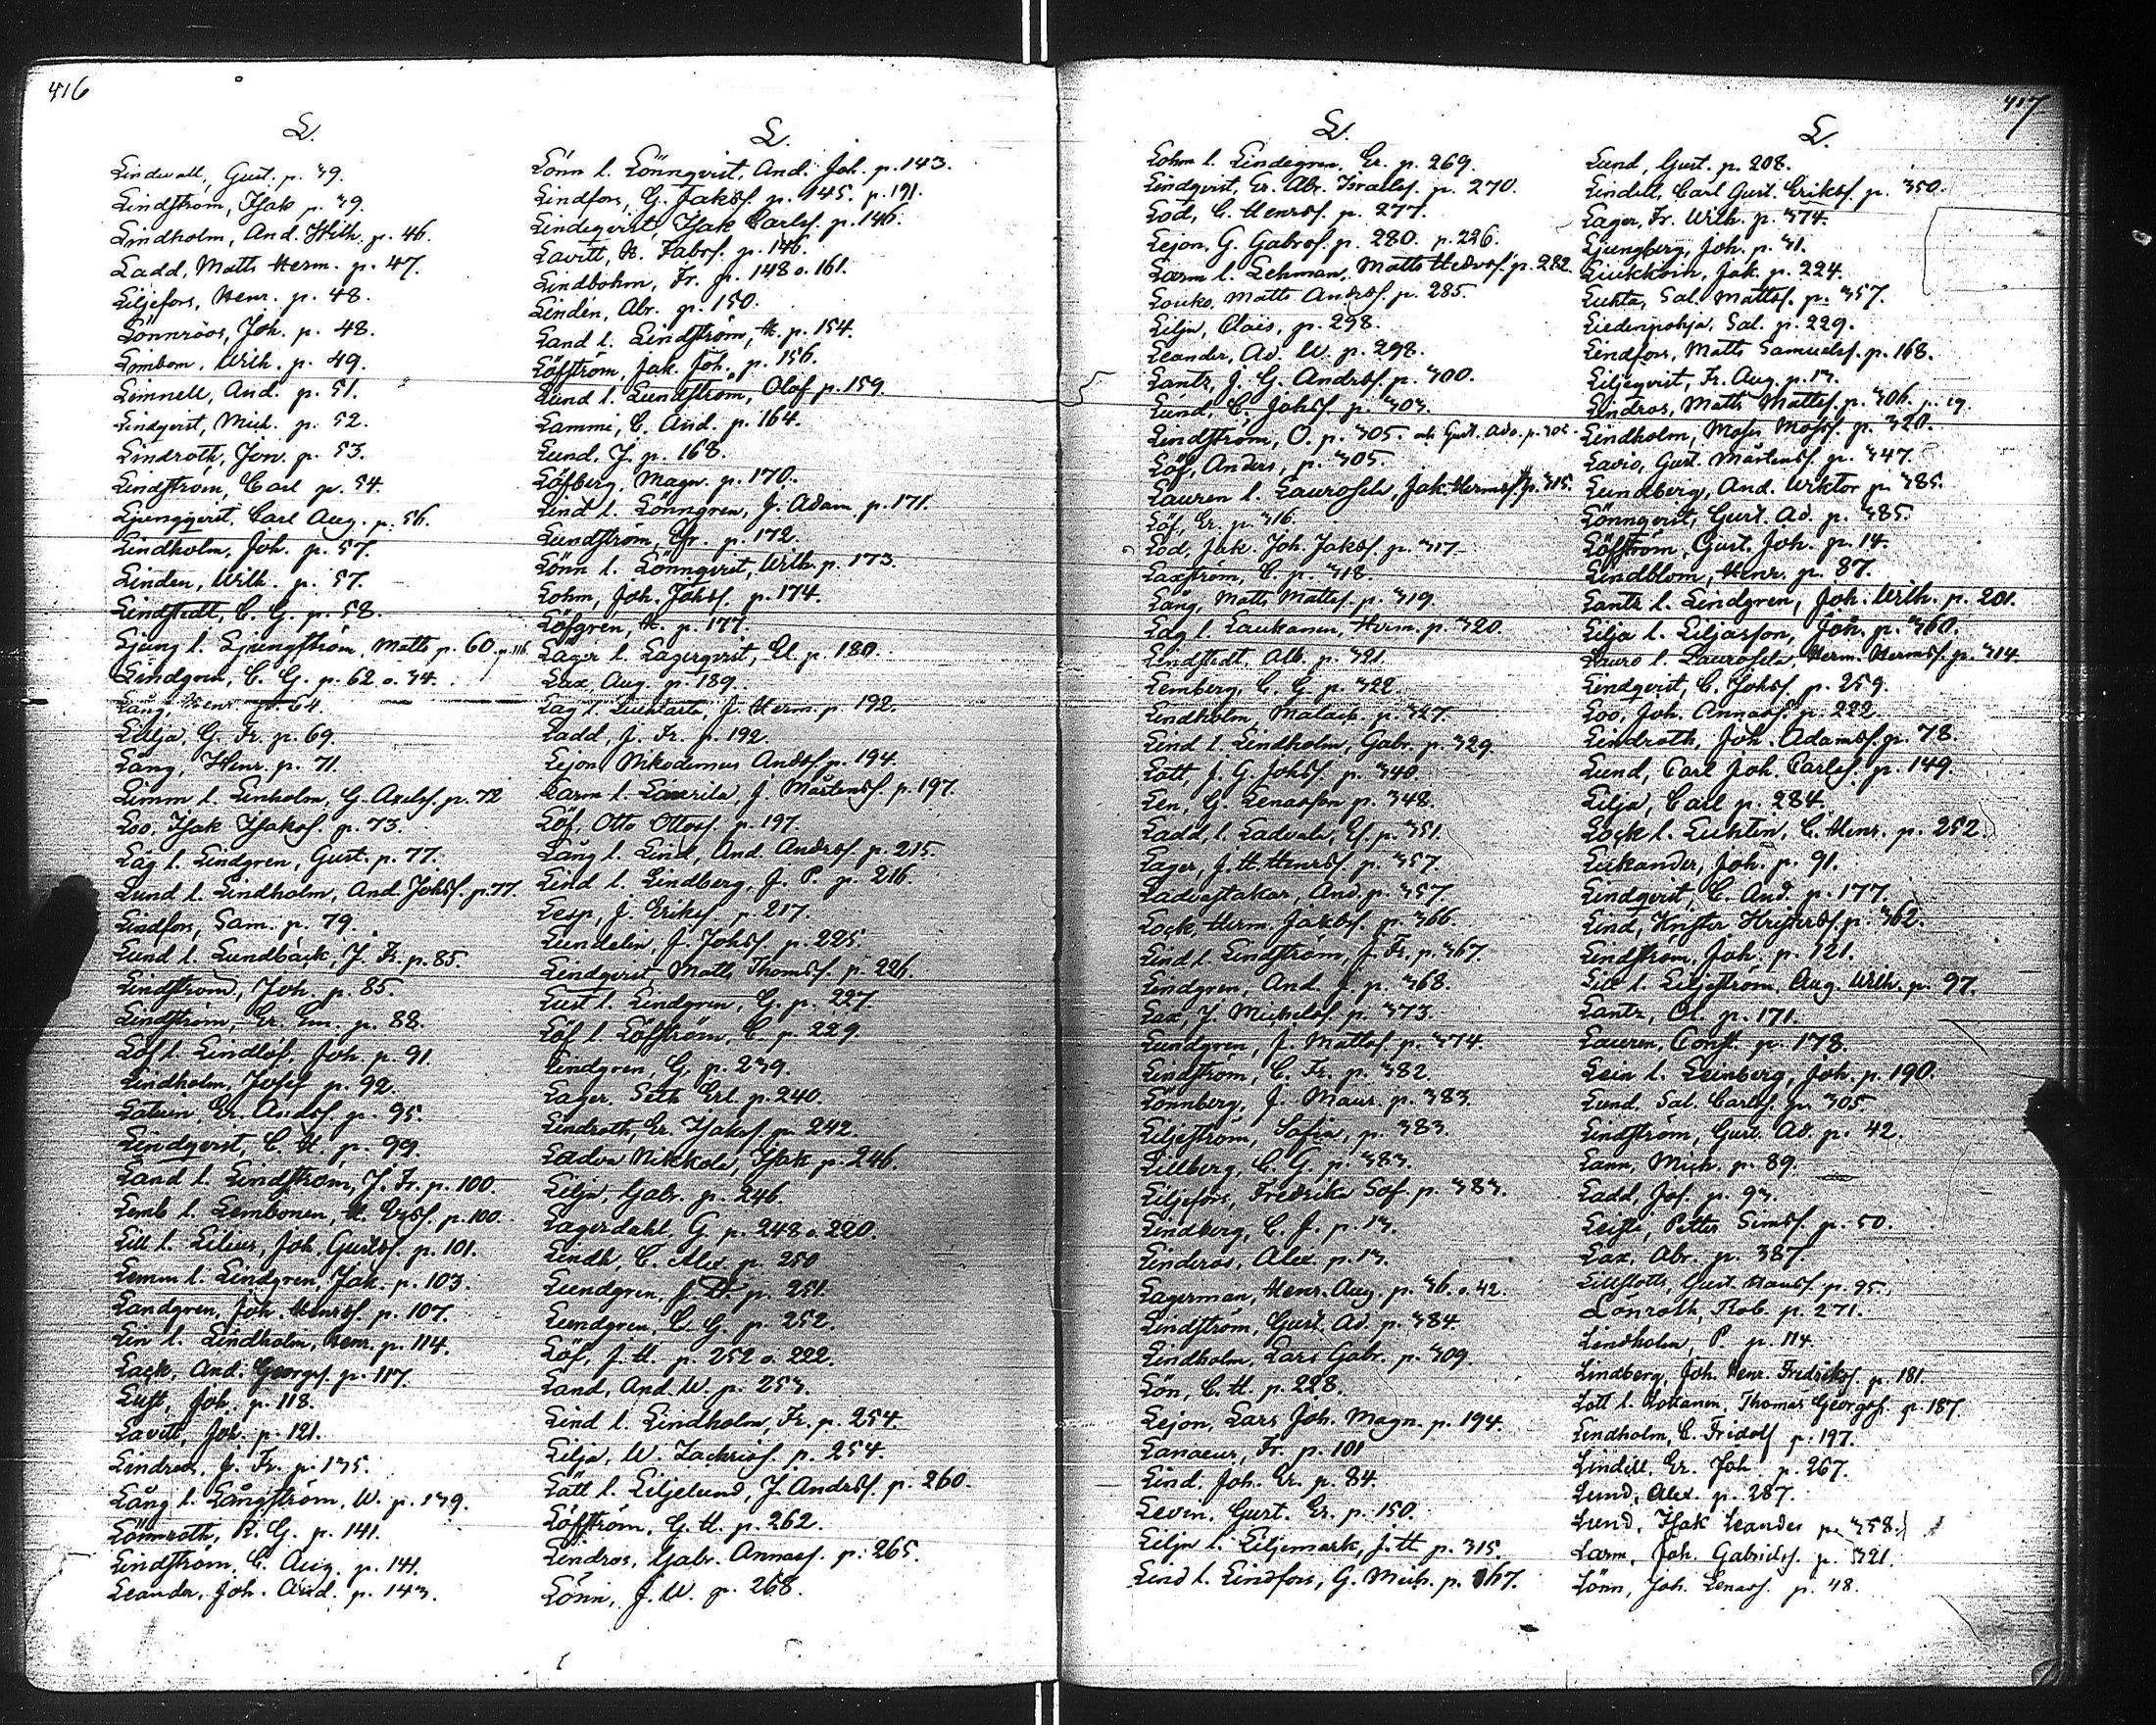 416
L.
Lindwall, Gust. p. 39.
Lindström, Isak p. 39.
Lindholm, And. Wilh. p. 46.
Ladd, Matts Herm. p. 47.
Liljefors, Henr. p. 48.
Lönnroos, Joh. p. 48.
Limbom, Wilh. p. 49.
Limnell, And. p. 51.
Lindqvist, Mich. p. 52.
Lindroth, Jon. p. 53.
Lindström, Carl p. 54.
Ljungqvist, Carl Aug. p. 56.
Lindholm, Joh. p. 57.
Linden, Wilh. p. 57.
Lindstedt, C. G. p. 58.
Ljung l. Ljungström, Matts p. 60. p. 116.
Lindgren, C. G. p. 62 o. 34.
Lång, Henr. p. 64.
Lilja, G. Fr. p. 69.
Lång, Henr. p. 71.
Limm l. Linholm, G. Axelsf. p. 72
Loo, Isak Isaksf. p. 73.
Låg l. Lindgren, Gust. p. 77.
Lund l. Lindholm, And. Johsf. p. 77.
Lindfors, Sam. p. 79.
Lund l. Lundbäck, J. Fr. p. 85.
Lindström, Joh. p. 85.
Lindström, Er. Em. p. 88.
Löf l. Lindlöf, Joh. p. 91.
Lindholm, Josef p. 92.
Er. Andsf. p. 95.
Lindqvist, C. H. p. 99.
Land l. Lindström, J. Fr. p. 100.
Lemb l. Lembonen, H. p. 100.
Lill l. Lilius, Joh. Gustsf. p. 101.
Lemm l. Lindgren, Jak. p. 103.
Landgren, Joh. Henrsf. p. 107.
Lin l. Lindholm, Henr. p. 114.
Lack, And. Georgsf. p. 117.
Lust, Joh. p. 118.
Lavitt, Joh. p. 121.
Lindros, J. Fr. p. 135.
Lång l. Långström, W. p. 139.
Lönnroth, R. G. p. 141.
Lindström, C. Aug. p. 141.
Leander, Joh. And. p. 143.
L.
Lönn l. Lönnqvist, And. Joh. p. 143.
Lindfors, G. Jaksf. p. 145. p. 191.
Lindeqvist, Isak Carlsf. p. 146.
Lavitt, H. Fabsf. p. 146.
Lindbohm, Fr. p. 148 o. 161.
Lindén, Abr. p. 150.
Land l. Lindström, H. p. 154.
Löfström, Jak. Joh. p. 156.
Lund l. Lundström, Olof p. 159.
Lammi, C. And. p. 164.
Lund, J. p. 168.
Löfberg, Magn. p. 170.
Lind l. Lönngren, J. Adam. p. 171.
Lundström, Efr. p. 172.
Lönn l. Lönnqvist, Wilh. p. 173.
Lohm, Joh. Johsf. p. 174.
Löfgren, H. p. 177.
Lager l. Lagerqvist, El. p. 180.
Lax, Aug. p. 189.
Låg l. J. Herm. p. 192.
Ladd, J. Fr. p. 192.
Lejon, Nikodemus Andsf. p. 194.
Larm l. J. Mårtensf. p. 197.
Löf, Otto Ottosf. p. 197.
Lång l. Lind, And. Andrsf. p. 215.
Lind l. Lindberg, J. P. p. 216.
Lesp, J. Eriksf. p. 217.
Lundelin, J. Johsf. p. 225.
Lindqvist Matts Thomsf. p. 226.
Lust l. Lindgren, G. p. 227.
Löf l. Löfström, C. p. 229.
Lindgren, G. p. 239.
Lager, Seth Erl. p. 240.
Lindroth, Er. Isaksf. p. 242.
Ladva Nikkola, Isak p. 246.
Lilja, Gabr. p. 246.
Lagerdahl, G. p. 248 o. 220.
Lindh, C. Alex. p. 250
Lundgren, J. H. p. 251.
Lundgren, C. G. p. 252.
Löf, J. H. p. 252 o. 222.
Land, And. W. p. 253.
Lind l. Lindholm, Fr. p. 254.
Lilja, W. Zachrisf. p. 254.
Lätt l. Liljelund, J. Andrsf. p. 260.
Löfström, G. H. p. 262.
Lindros, Gabr. Annasf. p. 265.
Lönn, J. W. p. 268.
417
L.
Lohm l. Lindegren, Er. p. 269.
Lindqvist, Er. Abr. Israelsf. p. 270.
Lod, C. Henrsf. p. 277.
Lejon, G. Gabrsf. p. 280. p. 226.
Larm l. Lehman, Matts Hedvsf. p. 282.
Louko, Matts Andrsf. p. 285.
Lilja, Claës, p. 298.
Leander, Ad. W. p. 298.
Lantz, J. G. Andrsf. p. 300.
Lund, C. Johsf. p. 303.
Lindström, O. p. 305. och Gust. Ado. p.
Löf, Anders, p. 305.
Lauren l. Laurosela, Jak. Hermsf. p. 315.
Löf, Er. p. 316.
Lod, Jak. Joh. Jaksf. p. 317.
Laxström, C. p. 318.
Lång, Matts Mattsf. p. 319.
Låg l. Laukanen, Herm. p. 320.
Lindstedt, Alb. p. 321.
Lemberg, C. G. p. 322.
Lindholm, Malach. p. 327.
Lind l. Lindholm, Gabr. p. 329
Lått, J. G. Johsf. p. 340.
Len, G. Lenasson p. 348.
Ladd l. Ladvala, Ef. p. 351.
Lager, J. H. Henrsf. p. 357.
And. p. 357.
Lock, Herm. Jaksf. p. 366.
Lind l. Lindström, J. Fr. p. 367.
Lindgren, And. J. p. 368.
Lax, J. Michelsf. p. 373.
Lundgren, J. Mattsf. p. 374.
Lindström, C. Fr. p. 382.
Lönnberg, J. Maur. p. 383.
Liljeström, Sofia, p. 383.
Lillberg, C. G. p. 383.
Liljefors, Fredrika Sof. p. 383.
Lindberg, C. J. p. 13.
Linderos, Alex. p. 13.
Lagerman, Henr. Aug. p. 36. o. 42.
Lindström, Gust. Ad. p. 384.
Lindholm, Lars Gabr. p. 309.
Lön, C. H. p. 228.
Lejon, Lars Joh. Magn. p. 194.
Lanaeus, Fr. p. 101
Lind. Joh. Er. p. 84.
Levin, Gust. Er. p. 150.
Lilja l. Liljemark, J. H. p. 315.
Lind l. Lindfors, G. Mich. p. 167.
L.
Lund, Gust. p. 208.
Lindell, Carl Gust. Eriksf. p. 350.
Lager, Fr. Wilh. p. 374.
Ljungberg, Joh. p. 31.
Jak. p. 224.
Luhta, Sal. Mattsf. p. 357.
Liedenpohja, Sal. p. 229.
Lindfors, Matts Samuelsf. p. 168.
Liljeqvist, Fr. Aug. p. 13.
Lindros, Matts Mattsf. p. 306. p. 19.
Lindholm, Moses Mosesf. p. 320.
Lavio, Gust. Mårtensf. p. 347.
Lundberg, And. Wiktor p. 385.
Lönnqvist, Gust. Ad. p. 385.
Löfström, Gust. Joh. p. 14.
Lindblom, Henr. p. 87.
Lantz l. Lindgren, Joh. Wilh. p. 201.
Lilja l. Liljasson, Joh. p. 360.
Lauro l. Laurosela, Herm. Hermsf. p. 314.
Lindqvist, C. Johsf. p. 259.
Loo, Joh. Annasf. p. 222.
Lindroth, Joh. Adamsf. p. 78.
Lund, Carl Joh. Carlsf. p. 149.
Lilja, Carl p. 284.
Lock l. Luhtin, C. Henr. p. 252.
Lukander, Joh. p. 91.
Lindqvist, C. And. p. 177.
Lind, Krister p. 362.
Lindström, Joh. p. 121.
Lill l. Liljeström, Aug. Wilh. p. 97.
Lantz, Ol. p. 171.
Lauren, Const. p. 178.
Lein l. Leinberg, Joh. p. 190.
Lund, Sal. Carlsf. p. 305.
Lindström, Gust. Ad. p. 42.
Lann, Mich. p. 89.
Ladd, Jos. p. 93.
Petter Simsf. p. 50.
Lax, Abr. p. 387.
Gust. Hansf. p. 95.
Lönroth, Rob. p. 271.
Lindholm, P. p. 114.
Lindberg, Joh. Henr. Fredriksf. p. 181.
Lått l. Lottanen, Thomas Georgsf. p. 187.
Lindholm, C. Fridolf p. 197.
Lindell, Er. Joh. p. 267.
Lund, Alex. p. 287.
Lund, Isak Leander p. 358.
Larm, Joh. Gabrielsf. p. 321.
Lönn, Joh. Lenasf. p. 48.